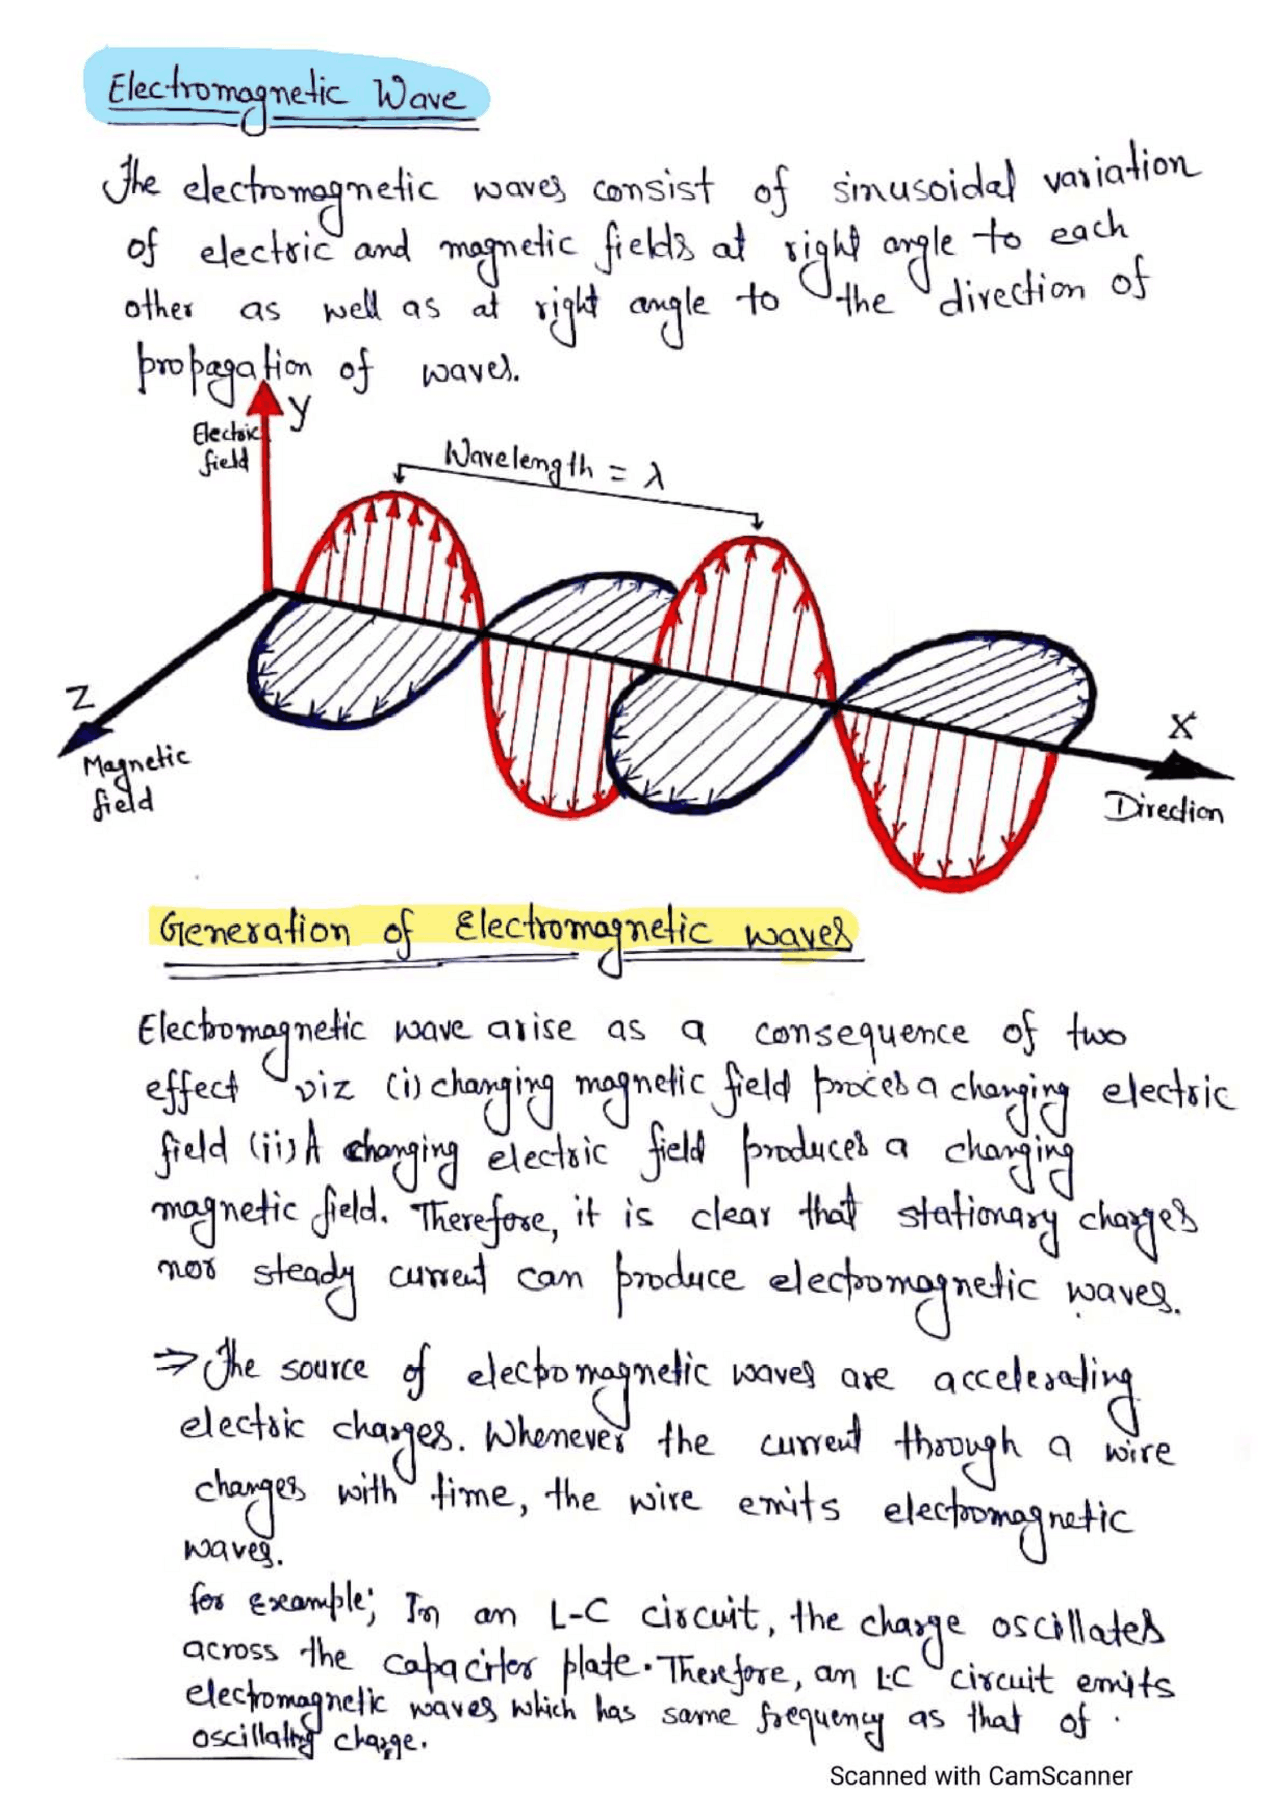 Electromagnetic Wave
The electromagnetic waves consist of sinusoidal variation
of electric and magnetic fields at right angle to each
other as well as at right angle to the direction of
propagation of waves.
Y
Electric
field
Wavelength = λ
Z
Magnetic
field
X
Direction
Generation of Electromagnetic waves
Electromagnetic wave arise as a consequence of two
effect viz (i) changing magnetic field proces a changing electric
field (ii) A changing electric field produces a changing
magnetic field. Therefore, it is clear that stationary charges
nor steady current can produce electromagnetic waves.
⇒ The source of electromagnetic waves are accelerating
electric charges. Whenever the current through a wire
changes with time, the wire emits electromagnetic
waves.
for example; In an L-C circuit, the charge oscillates
across the capacitor plate. Therefore, an LC circuit emits
electromagnetic waves which has same frequency as that of
oscillating charge.
Scanned with CamScanner